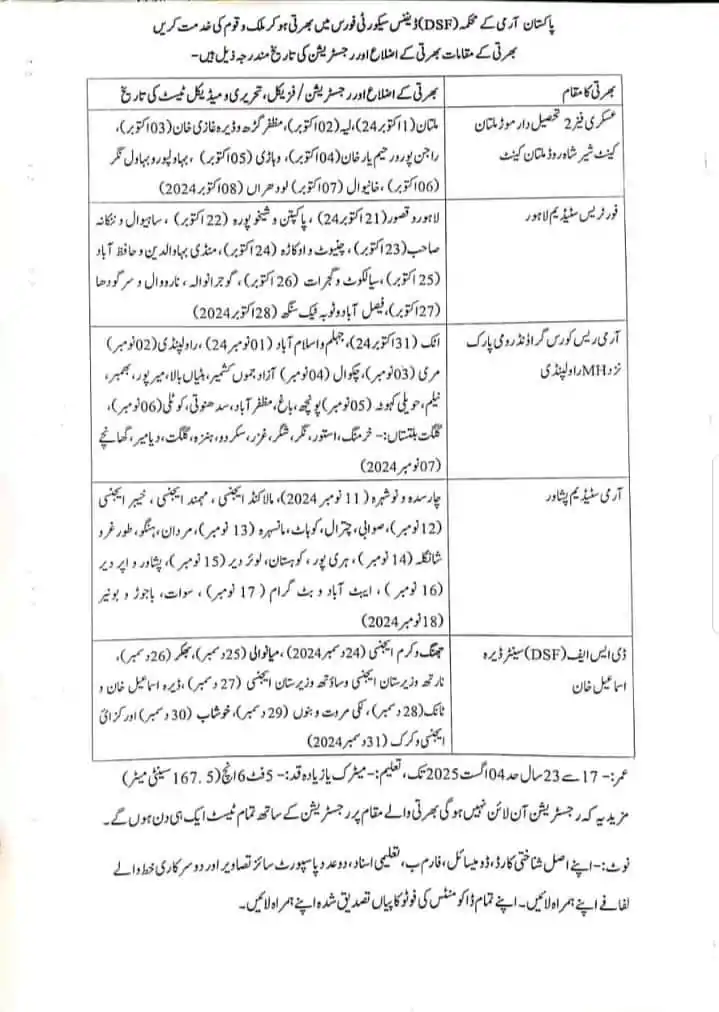 پاکستان آرمی کے محکمہ (DSF) ڈیفنس سیکورٹی فورس میں بھرتی ہو کر ملک و قوم کی خدمت کریں
بھرتی کے مقامات بھرتی کے اضلاع اور رجسٹریشن کی تاریخ مندرجہ ذیل ہیں۔
بھرتی کا مقام
بھرتی کے اضلاع اور رجسٹریشن / فزیکل، تحریری و میڈیکل ٹیسٹ کی تاریخ
عسکری فیز 2 تحصیل دار موڑ ملتان
کینٹ شیر شاہ روڈ ملتان کینٹ
ملتان (1 اکتوبر 24)، لیہ (02 اکتوبر)، مظفر گڑھ و ڈیرہ غازی خان (03 اکتوبر)،
راجن پور و رحیم یار خان (04 اکتوبر)، وہاڑی (05 اکتوبر) ، بہاولپور و بہاول نگر
(06 اکتوبر) ، خانیوال (07 اکتوبر) لودھراں (08 اکتوبر 2024)
فورٹریس سٹیڈیم لاہور
لاہور و قصور (21 اکتوبر 24) ، پاکپتن و شیخوپورہ (22 اکتوبر) ، ساہیوال و ننکانہ
صاحب (23 اکتوبر)، چنیوٹ و اوکاڑہ (24 اکتوبر)، منڈی بہاوالدین و حافظ آباد
(25 اکتوبر)، سیالکوٹ و گجرات (26 اکتوبر)، گوجرانوالہ، نارووال و سرگودھا
(27 اکتوبر)، فیصل آباد و ٹوبہ ٹیک سنگھ (28 اکتوبر 2024)
آرمی ریس کورس گراؤنڈ نزد رومی پارک
نزد MH راولپنڈی
اٹک (31 اکتوبر 24)، جہلم و اسلام آباد (01 نومبر 24)، راولپنڈی (02 نومبر)
مری (03 نومبر)، چکوال (04 نومبر) آزاد جموں کشمیر، ہٹیاں بالا، میر پور، بھمبر،
نیلم، حویلی کہوٹہ (05 نومبر) پونچھ، باغ، مظفر آباد، سدھنوتی، کوٹلی (06 نومبر)،
گلگت بلتستان:- خرمنگ، استور، نگر، شگر، غزر، سکردو، ہنزہ، گلگت، دیامیر، گھانچے
(07 نومبر 2024)
آرمی سٹیڈیم پشاور
چارسدہ و نوشہرہ (11 نومبر 2024)، مالاکنڈ ایجنسی ، مہمند ایجنسی ، خیبر ایجنسی
(12 نومبر)، صوابی، چترال، کوہاٹ، مانسہرہ (13 نومبر)، مردان، ہنگو، طورغر و
شانگلہ (14 نومبر) ، ہری پور ، کوہستان، لوئر دیر (15 نومبر)، پشاور و اپر دیر
(16 نومبر) ، ایبٹ آباد و بٹ گرام (17 نومبر) ، سوات، باجوڑ و بونیر
(18 نومبر 2024)
ڈی ایس ایف (DSF) سینٹر ڈیرہ
اسماعیل خان
جھنگ و کرم ایجنسی (24 دسمبر 2024) ، میانوالی (25 دسمبر)، بھکر (26 دسمبر)،
نارتھ وزیرستان ایجنسی و ساؤتھ وزیرستان ایجنسی (27 دسمبر)، ڈیرہ اسماعیل خان و
ٹانک (28 دسمبر)، لکی مروت و بنوں (29 دسمبر)، خوشاب (30 دسمبر) اورکزائ
ایجنسی و کرک (31 دسمبر 2024)
عمر:- 17 سے 23 سال حد 04 اگست 2025 تک، تعلیم:- میٹرک یا زیادہ قد:- 5 فٹ 6 انچ (167.5 سینٹی میٹر)
مزید یہ کہ رجسٹریشن آن لائن نہیں ہوگی بھرتی والے مقام پر رجسٹریشن کے ساتھ تمام ٹیسٹ ایک ہی دن ہوں گے۔
نوٹ:- اپنے اصل شناختی کارڈ، ڈومیسائل، فارم ب، تعلیمی اسناد، دو عدد پاسپورٹ سائز تصاویر اور دو سرکاری خط والے
لفافے اپنے ہمراہ لائیں۔ اپنے تمام ڈاکومنٹس کی فوٹو کاپیاں تصدیق شدہ اپنے ہمراہ لائیں۔